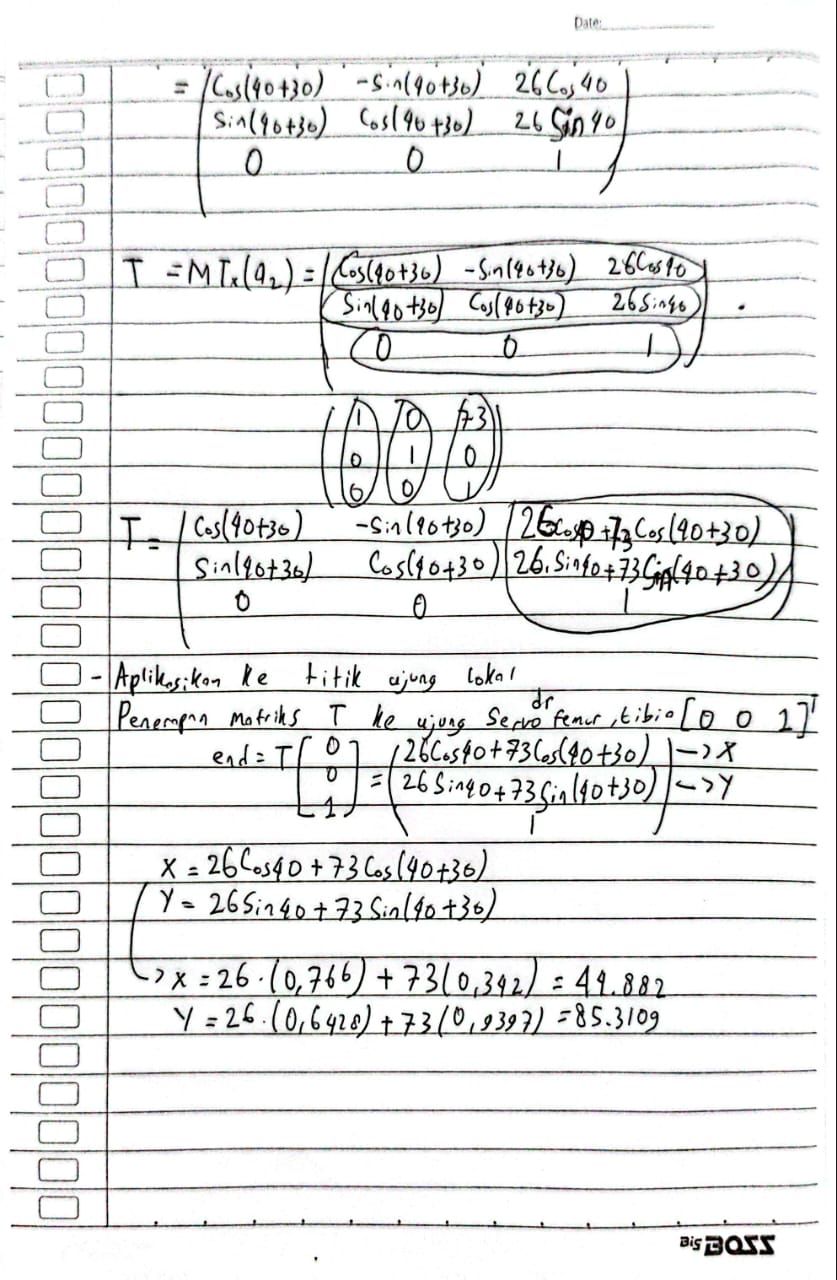 Date:
= Cos(40+30) -Sin(40+30) 26 Cos 40
Sin(40+30) Cos(40+30) 26 Sin 40
0 0 1
T = M Tx(a2) = Cos(40+30) -Sin(40+30) 26Cos40
Sin(40+30) Cos(40+30) 26Sin40 .
0 0 1
1 0 73
0 1 0
0 0 1
T = Cos(40+30) -Sin(40+30) 26Cos40+73Cos(40+30)
Sin(40+30) Cos(40+30) 26.Sin40+73Sin(40+30)
0 0 1
- Aplikasikan ke titik ujung lokal
Penerapan Matriks T ke ujung Servo dr femur, tibia [0 0 1]ᵀ
end = T [0 0 1] = 26Cos40+73Cos(40+30) -> X
26Sin40+73Sin(40+30) -> Y
1
X = 26Cos40 + 73Cos(40+30)
Y = 26Sin40 + 73Sin(40+30)
-> X = 26.(0,766) + 73(0,342) = 44.882
Y = 26.(0,6428) + 73(0,9397) = 85.3109
Big BOSS